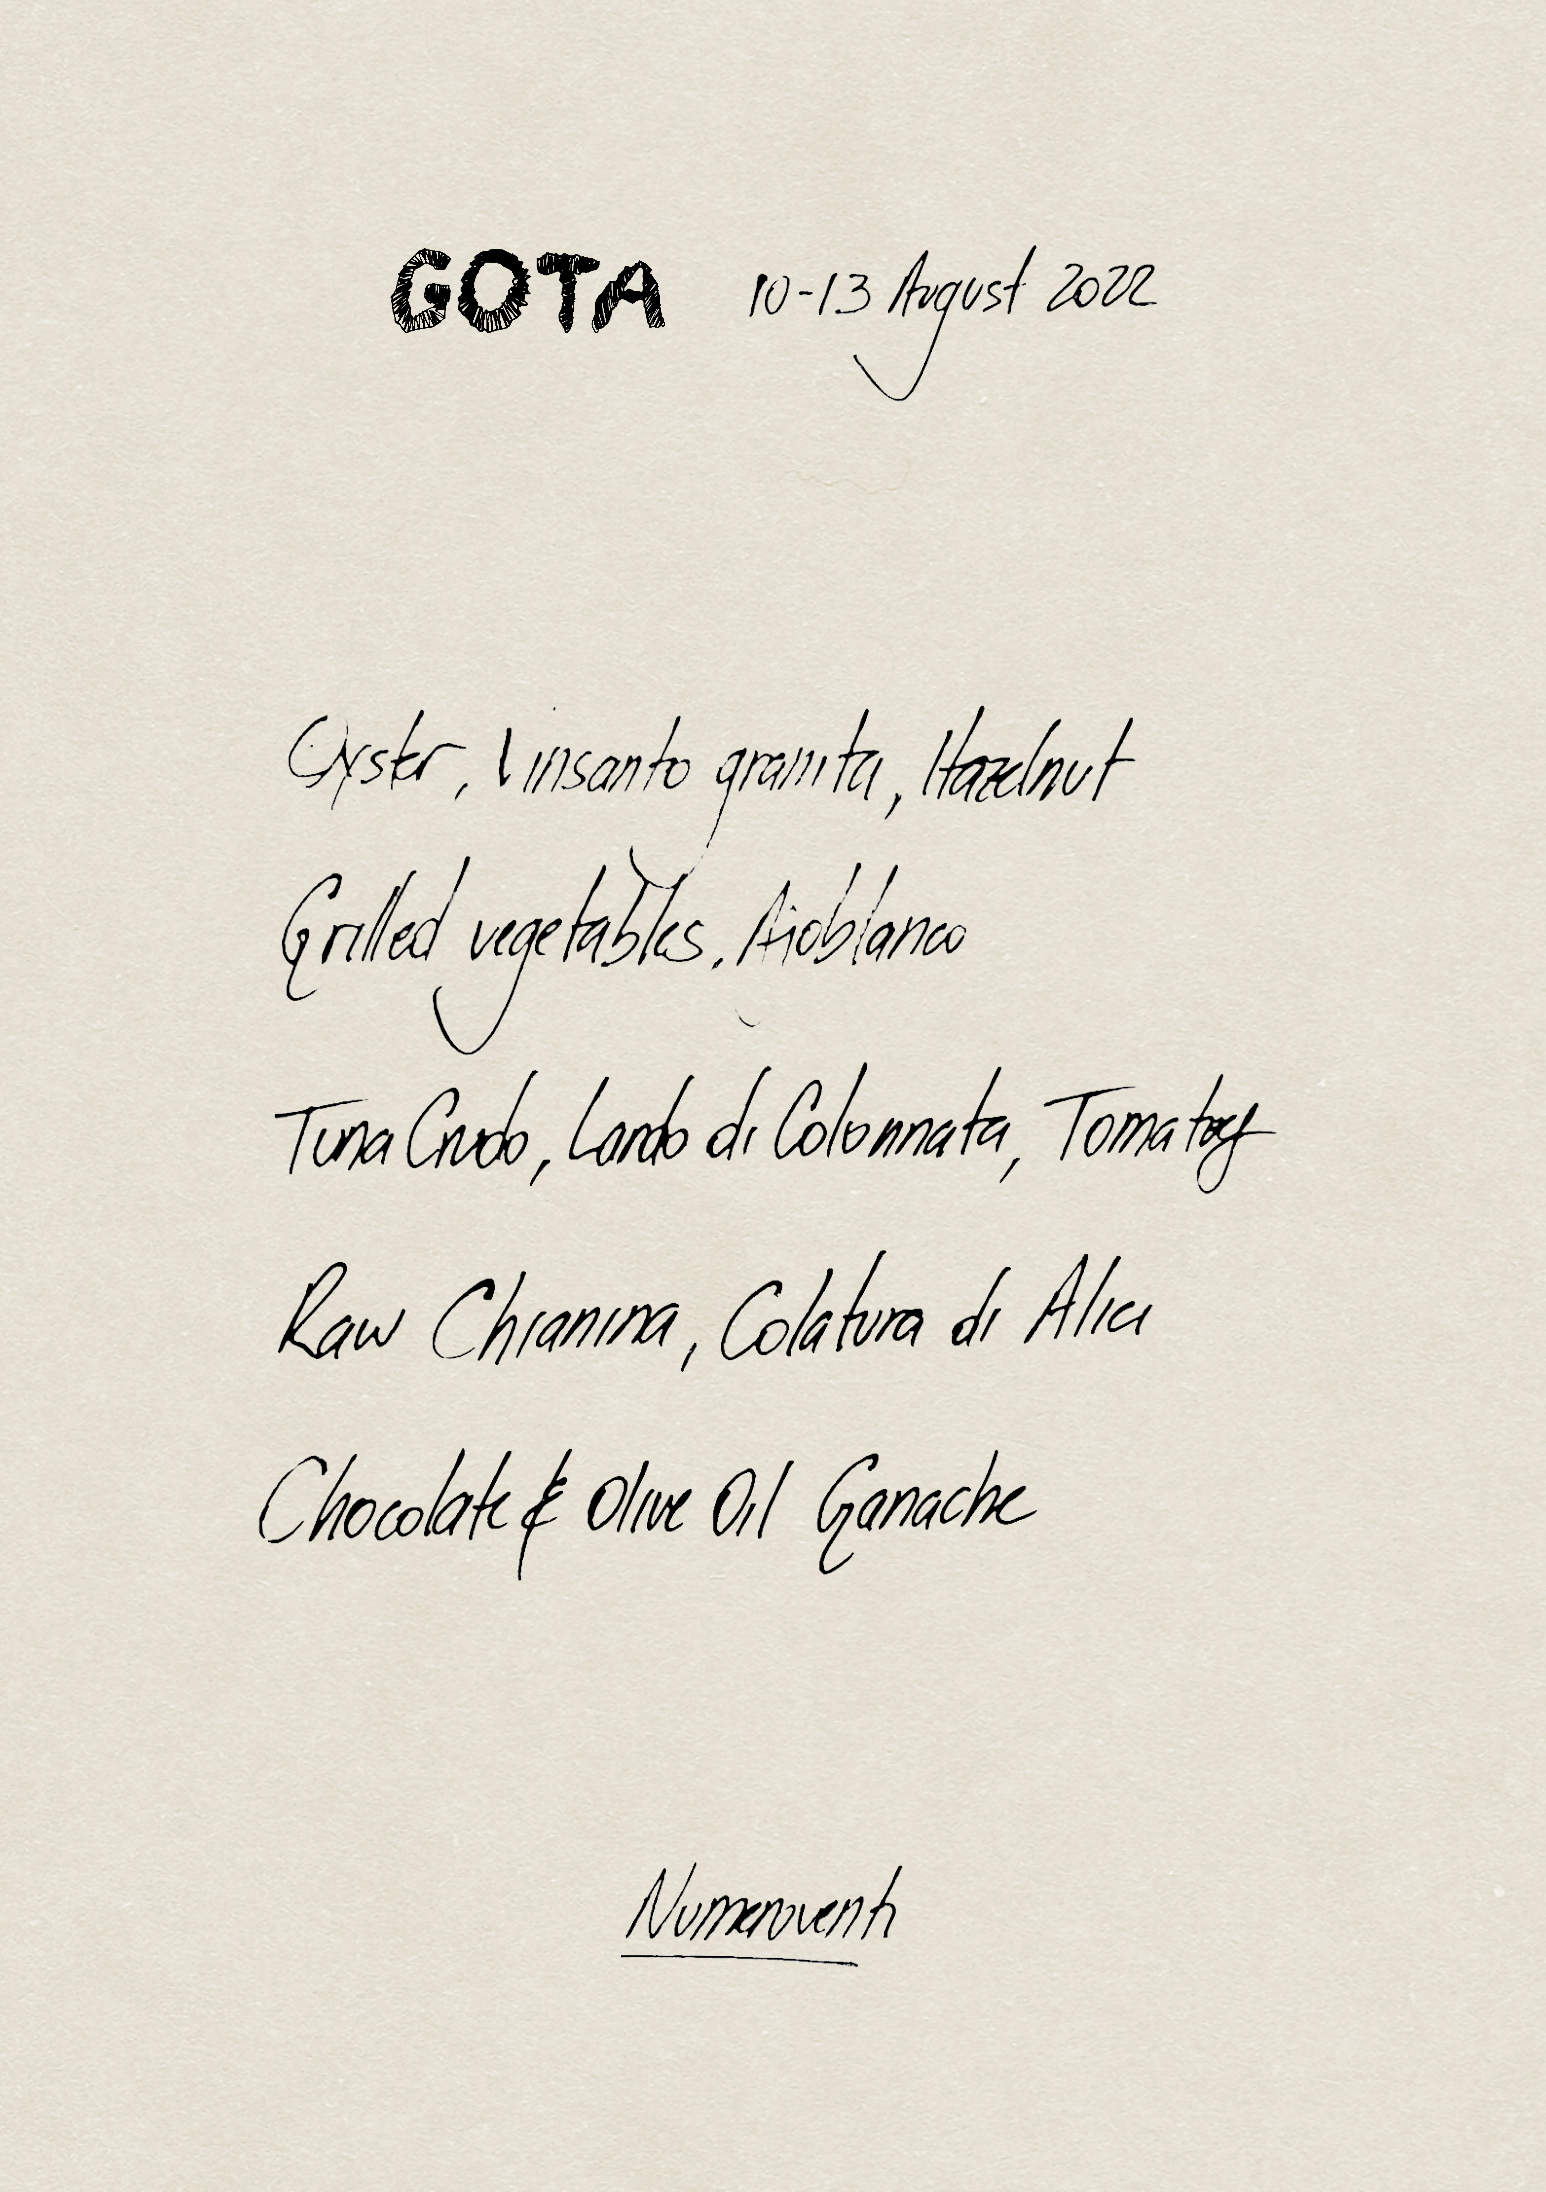 GOTA 10-13 August 2022
Oyster, Vinsanto granita, Hazelnut
Grilled vegetables, Ajoblanco
Tuna Crudo, Lardo di Colonnata, Tomatoes
Raw Chianina, Colatura di Alici
Chocolate & Olive Oil Ganache
Numeroventi